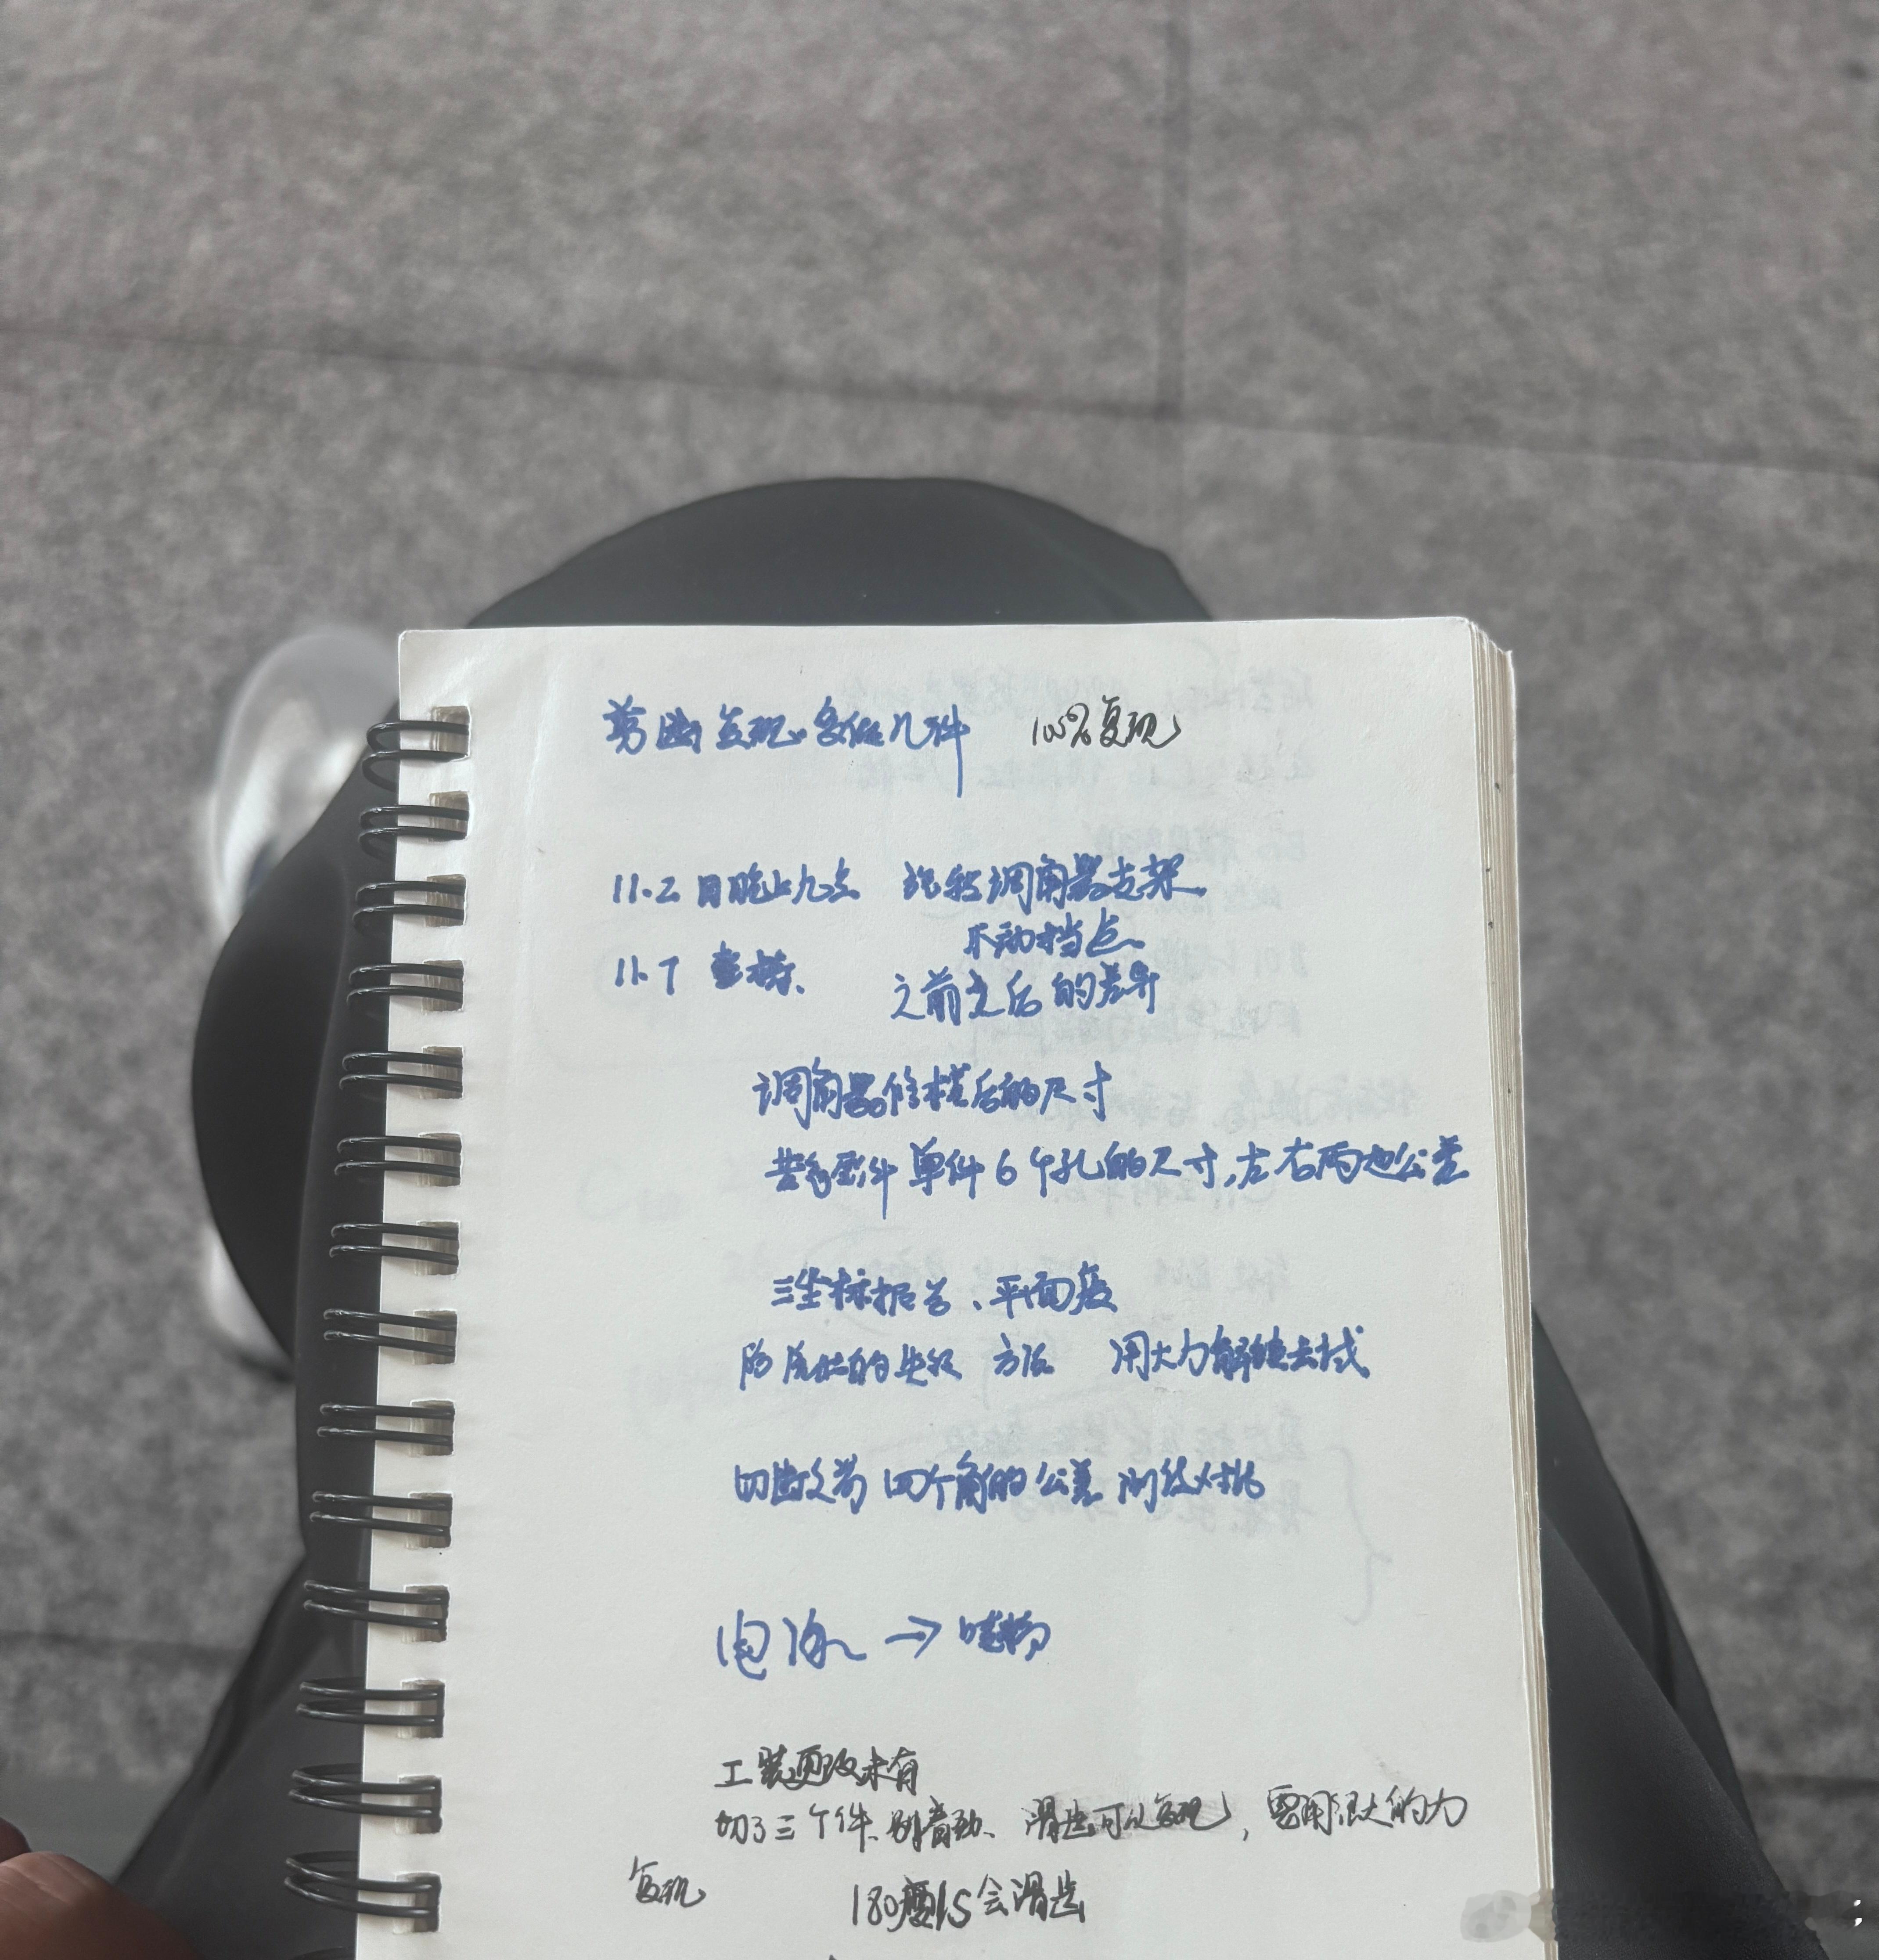 剪断复现、多做几件 100%复现
11.2日晚上九点 旋转调角器支架
不动挡点
11.7 查核、 之前之后的差异
调角器修模后的尺寸
单件6个孔的尺寸,左右两边公差
三坐标报告、平面度
方法 用大力解锁去找
切断 四个角的公差 测绘对比
电流 →
工装更改未有
切了三个件、 滑齿可以复现,需用很大的力
复现 180度 会滑齿